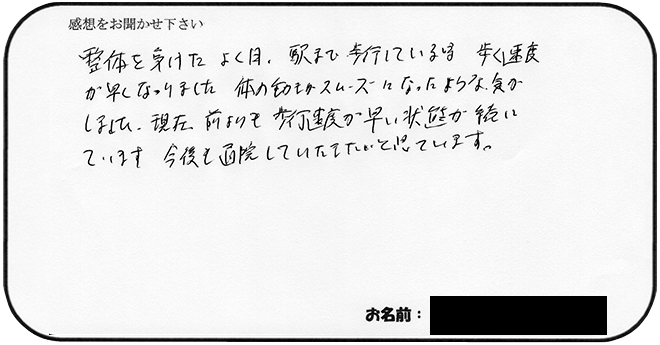 感想をお聞かせ下さい
整体を受けた よく日、駅まで歩行している時 歩く速度
が早くなりました 体の動きがスムーズになったような気が
しました、現在、前よりも 歩行速度が早い状態が続い
ています 今後も通院していたきたいと思ています。
お名前：